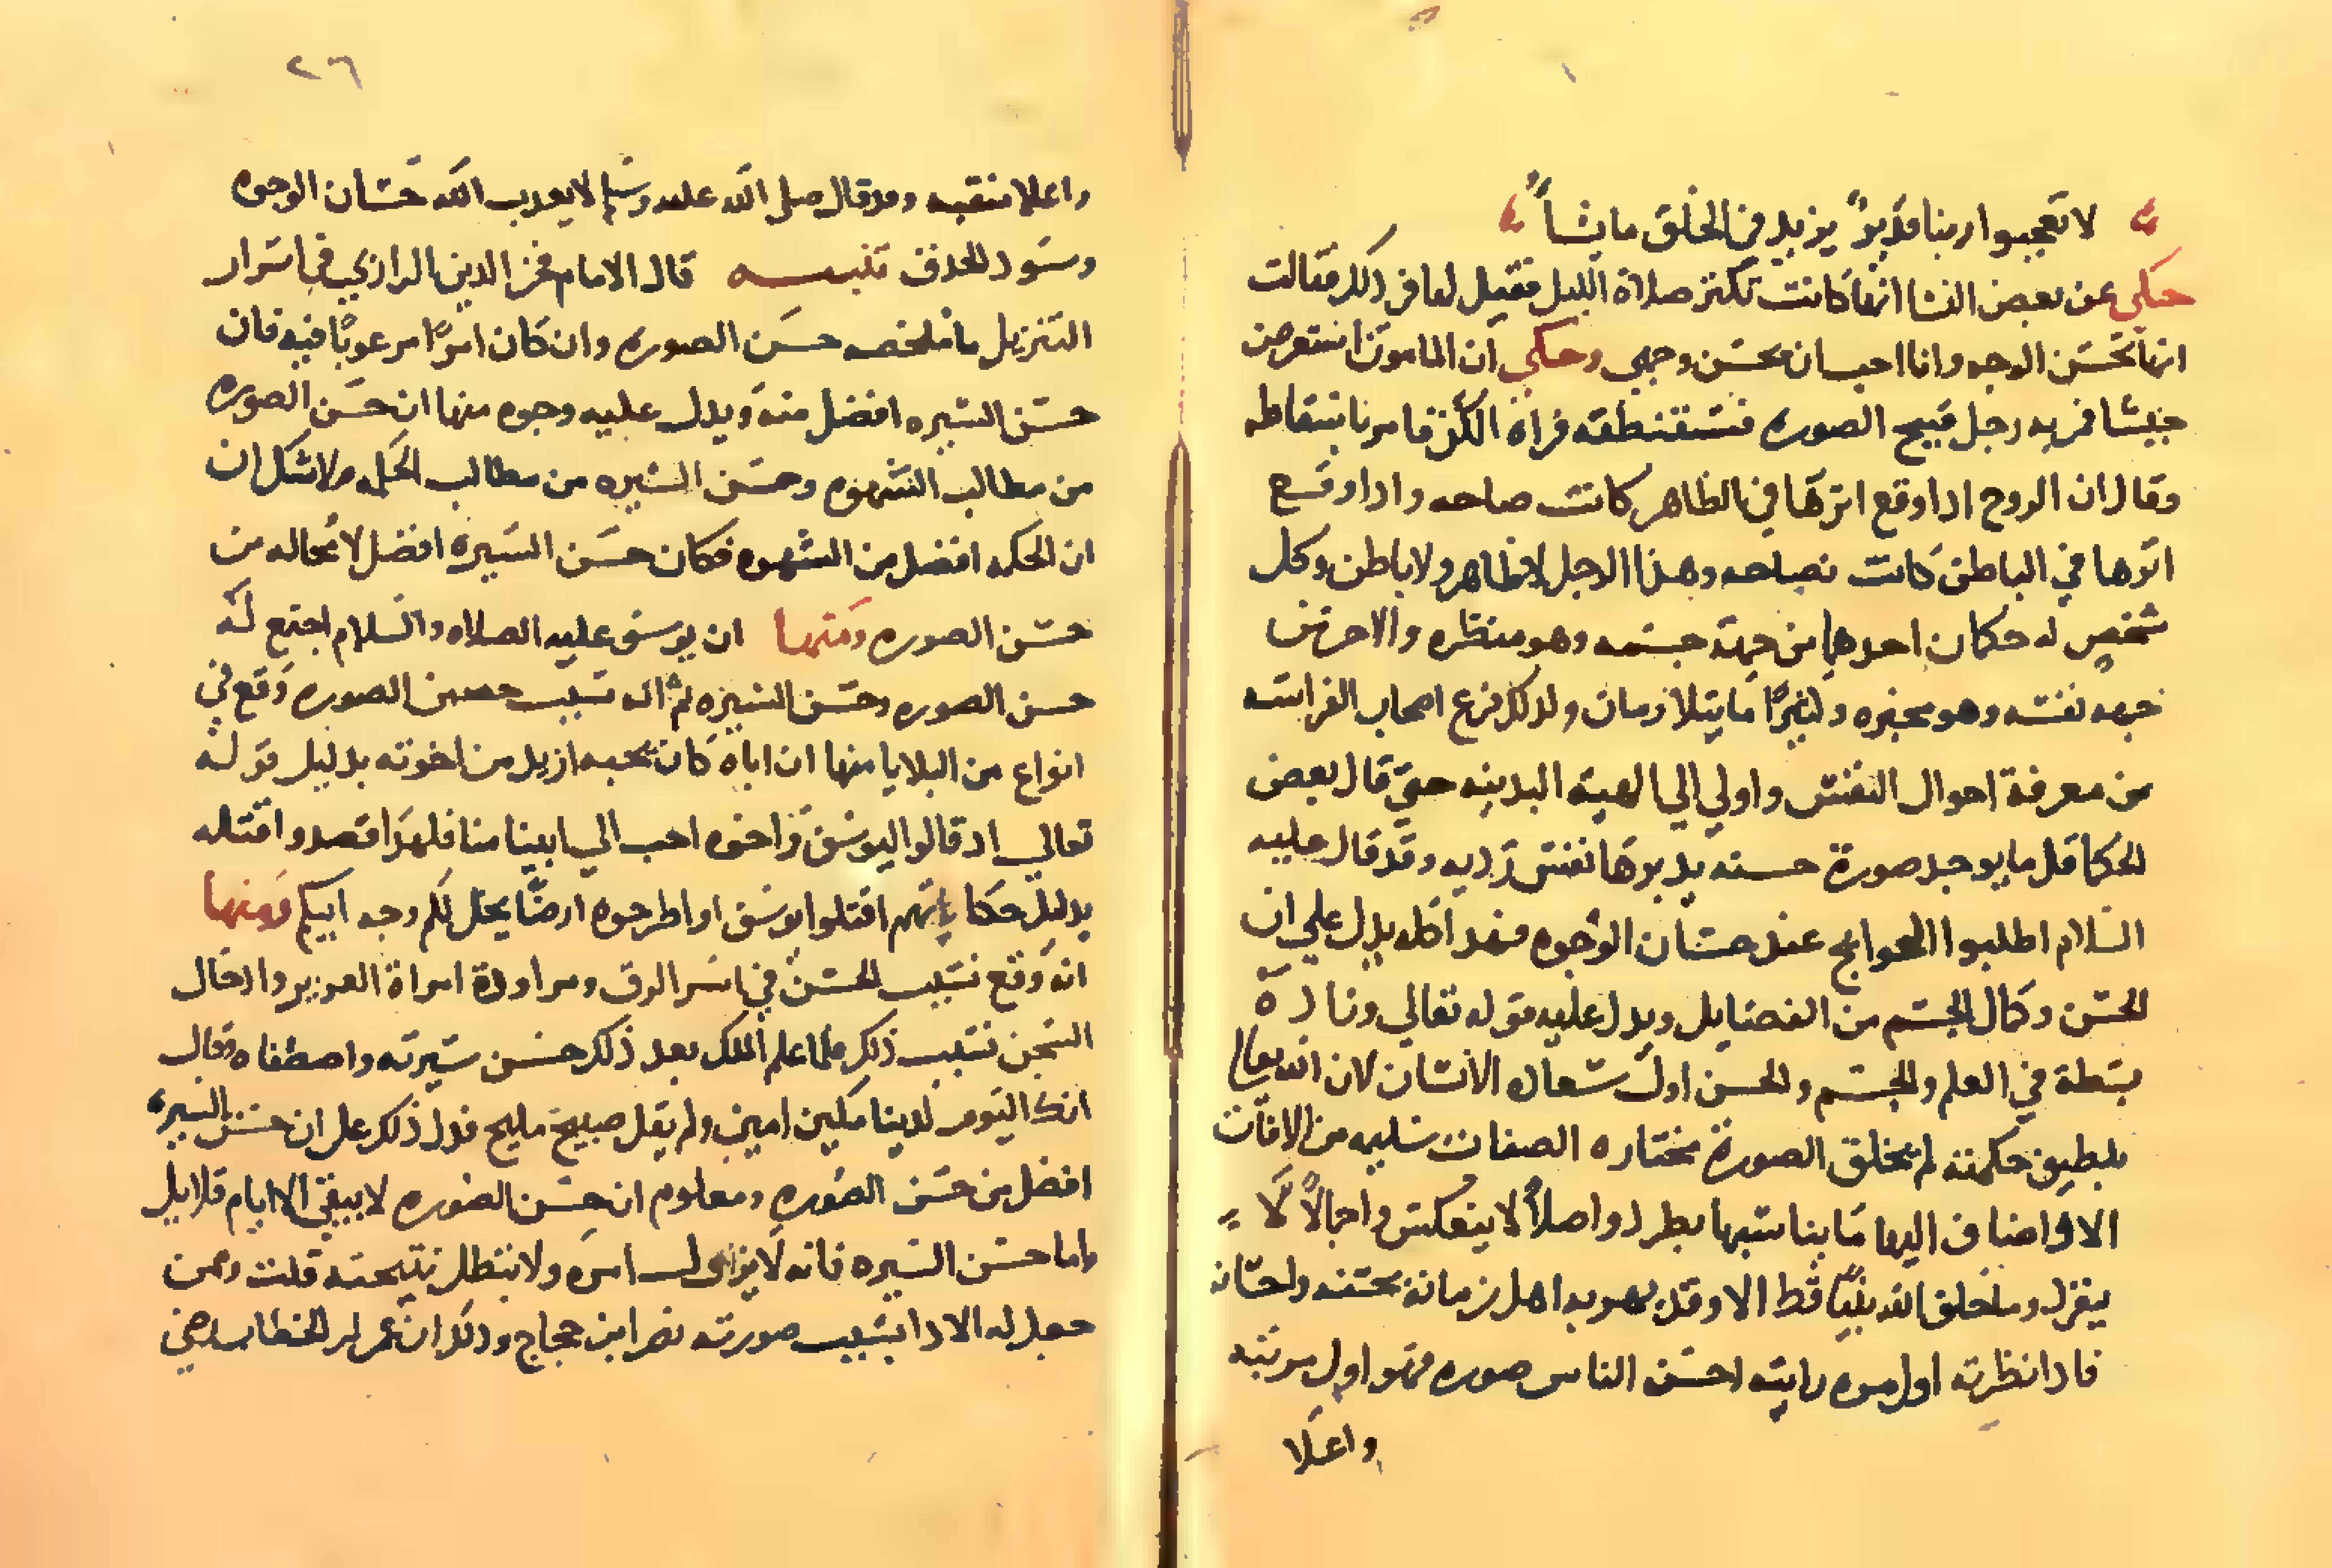 لا تعجبوا ربنا قدير يزيد في الخلق ما يشا
حكي عن بعض النسا انها كانت تكثر صلاة الليل فقيل لها في ذلك فقالت
انها تحسن الوجه وانا احب ان يحسن وجهي وحكي ان المامون استعرض
جيشا فمر به رجل قبيح الصوره فاستنطقه فراه الكن فامر باسقاطه
وقال ان الروح ادا وقع اثرها في الظاهر كانت صباحه وادا وقع
اثرها في الباطن كانت فصاحه وهذا الرجل لا ظاهر ولا باطن وكل
شخص له حكمان احدهما من جهة جسمه وهو منظره والاخر من
جهه نفسه وهو مخبره وكثيرًا ما يتلازمان ولذلك فزع اصحاب الفراسة
من معرفة احوال النفس واولي الي الهية البدنيه حتي قال بعض
الحكما قل ما يوجد صورة حسنه يدبرها نفس رديه وقد قال عليه
السلام اطلبوا الحوايج عند حسان الوجوه فهذا كله يدل علي ان
الحسن وكمال الجسم من الفضايل ويدل عليه قوله تعالي وزاده
بسطة في العلم والجسم والحسن اول سعادة الانسان لان الله تعالي
بلطيف حكمته لم يخلق الصورة مختاره الصفات سليمه من الافات
الا واضاف اليها ما يناسبها يطرد واصلاً لا ينعكس واجمالاً لا
ينزل وما خلق الله نبيًا قط الا وقد بهر به اهل زمانه بحسنه واحسانه
فادا نظرته اول مره رايته احسن الناس صوره فهو اول مرتبه
واعلا
٢٦
واعلا منقبه وقد قال صلى الله عليه وسلم لا يعذب الله حسان الوجوه
وسود الحدق تنبيه قال الامام فخر الدين الرازي في اسرار
التنزيل ما ملخصه حسن الصوره وان كان امرًا مرغوبًا فيه فان
حسن السيره افضل منه ويدل عليه وجوه منها ان حسن الصوره
من مطالب الشهوه وحسن السيره من مطالب الحكمه ولا شك ان
ان الحكمه افضل من الشهوه فكان حسن السيرة افضل لا محاله من
حسن الصوره ومنها ان يوسف عليه الصلاه والسلام اجتمع له
حسن الصوره وحسن السيره ثم انه بسبب حسن الصوره وقع في
انواع من البلايا منها ان اباه كان يحبه ازيد من اخوته بدليل قوله
تعالي اد قالوا ليوسف واخوه احب الي ابينا منا فلهذا قصدوا قتله
بدليل حكايتهم اقتلوا يوسف او اطرحوه ارضًا يخل لكم وجه ابيكم ومنها
انه وقع بسبب الحسن في اسر الرق ومراودة امراة العزيز وادخال
السجن بسبب ذلك فلما علم الملك بعد ذلك حسن سيرته واصطفاه وقال
انك اليوم لدينا مكين امين ولم يقل صبيح مليح فدل ذلك على ان حسن السيره
افضل من حسن الصوره ومعلوم ان حسن الصوره لا يبقي الا ايام قلايل
واما حسن السيره فانه لا يزال اسره ولا تبطل نتيجته قلت وممن
حصل له الادا بسبب صورته نصر ابن حجاج وذلك ان عمر ابن الخطاب رضي